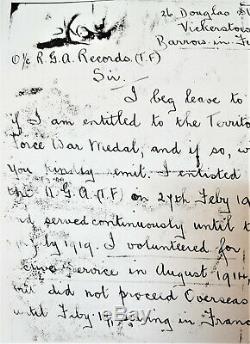 26 Douglas St
Vickerstow
Barrow in F
O/c R.G.A. Records (T.F)
Sir.
I beg leave to
if I am entitled to the Territo
Force War Medal, and if so, w
you kindly remit. I enlisted
the R.G.A.(T.F) on 27th Feby 19
nd served continuously until t
July 1919. I volunteered for
service in August 1914,
unit did not proceed Overseas
until Feby. 19 serving in Franc